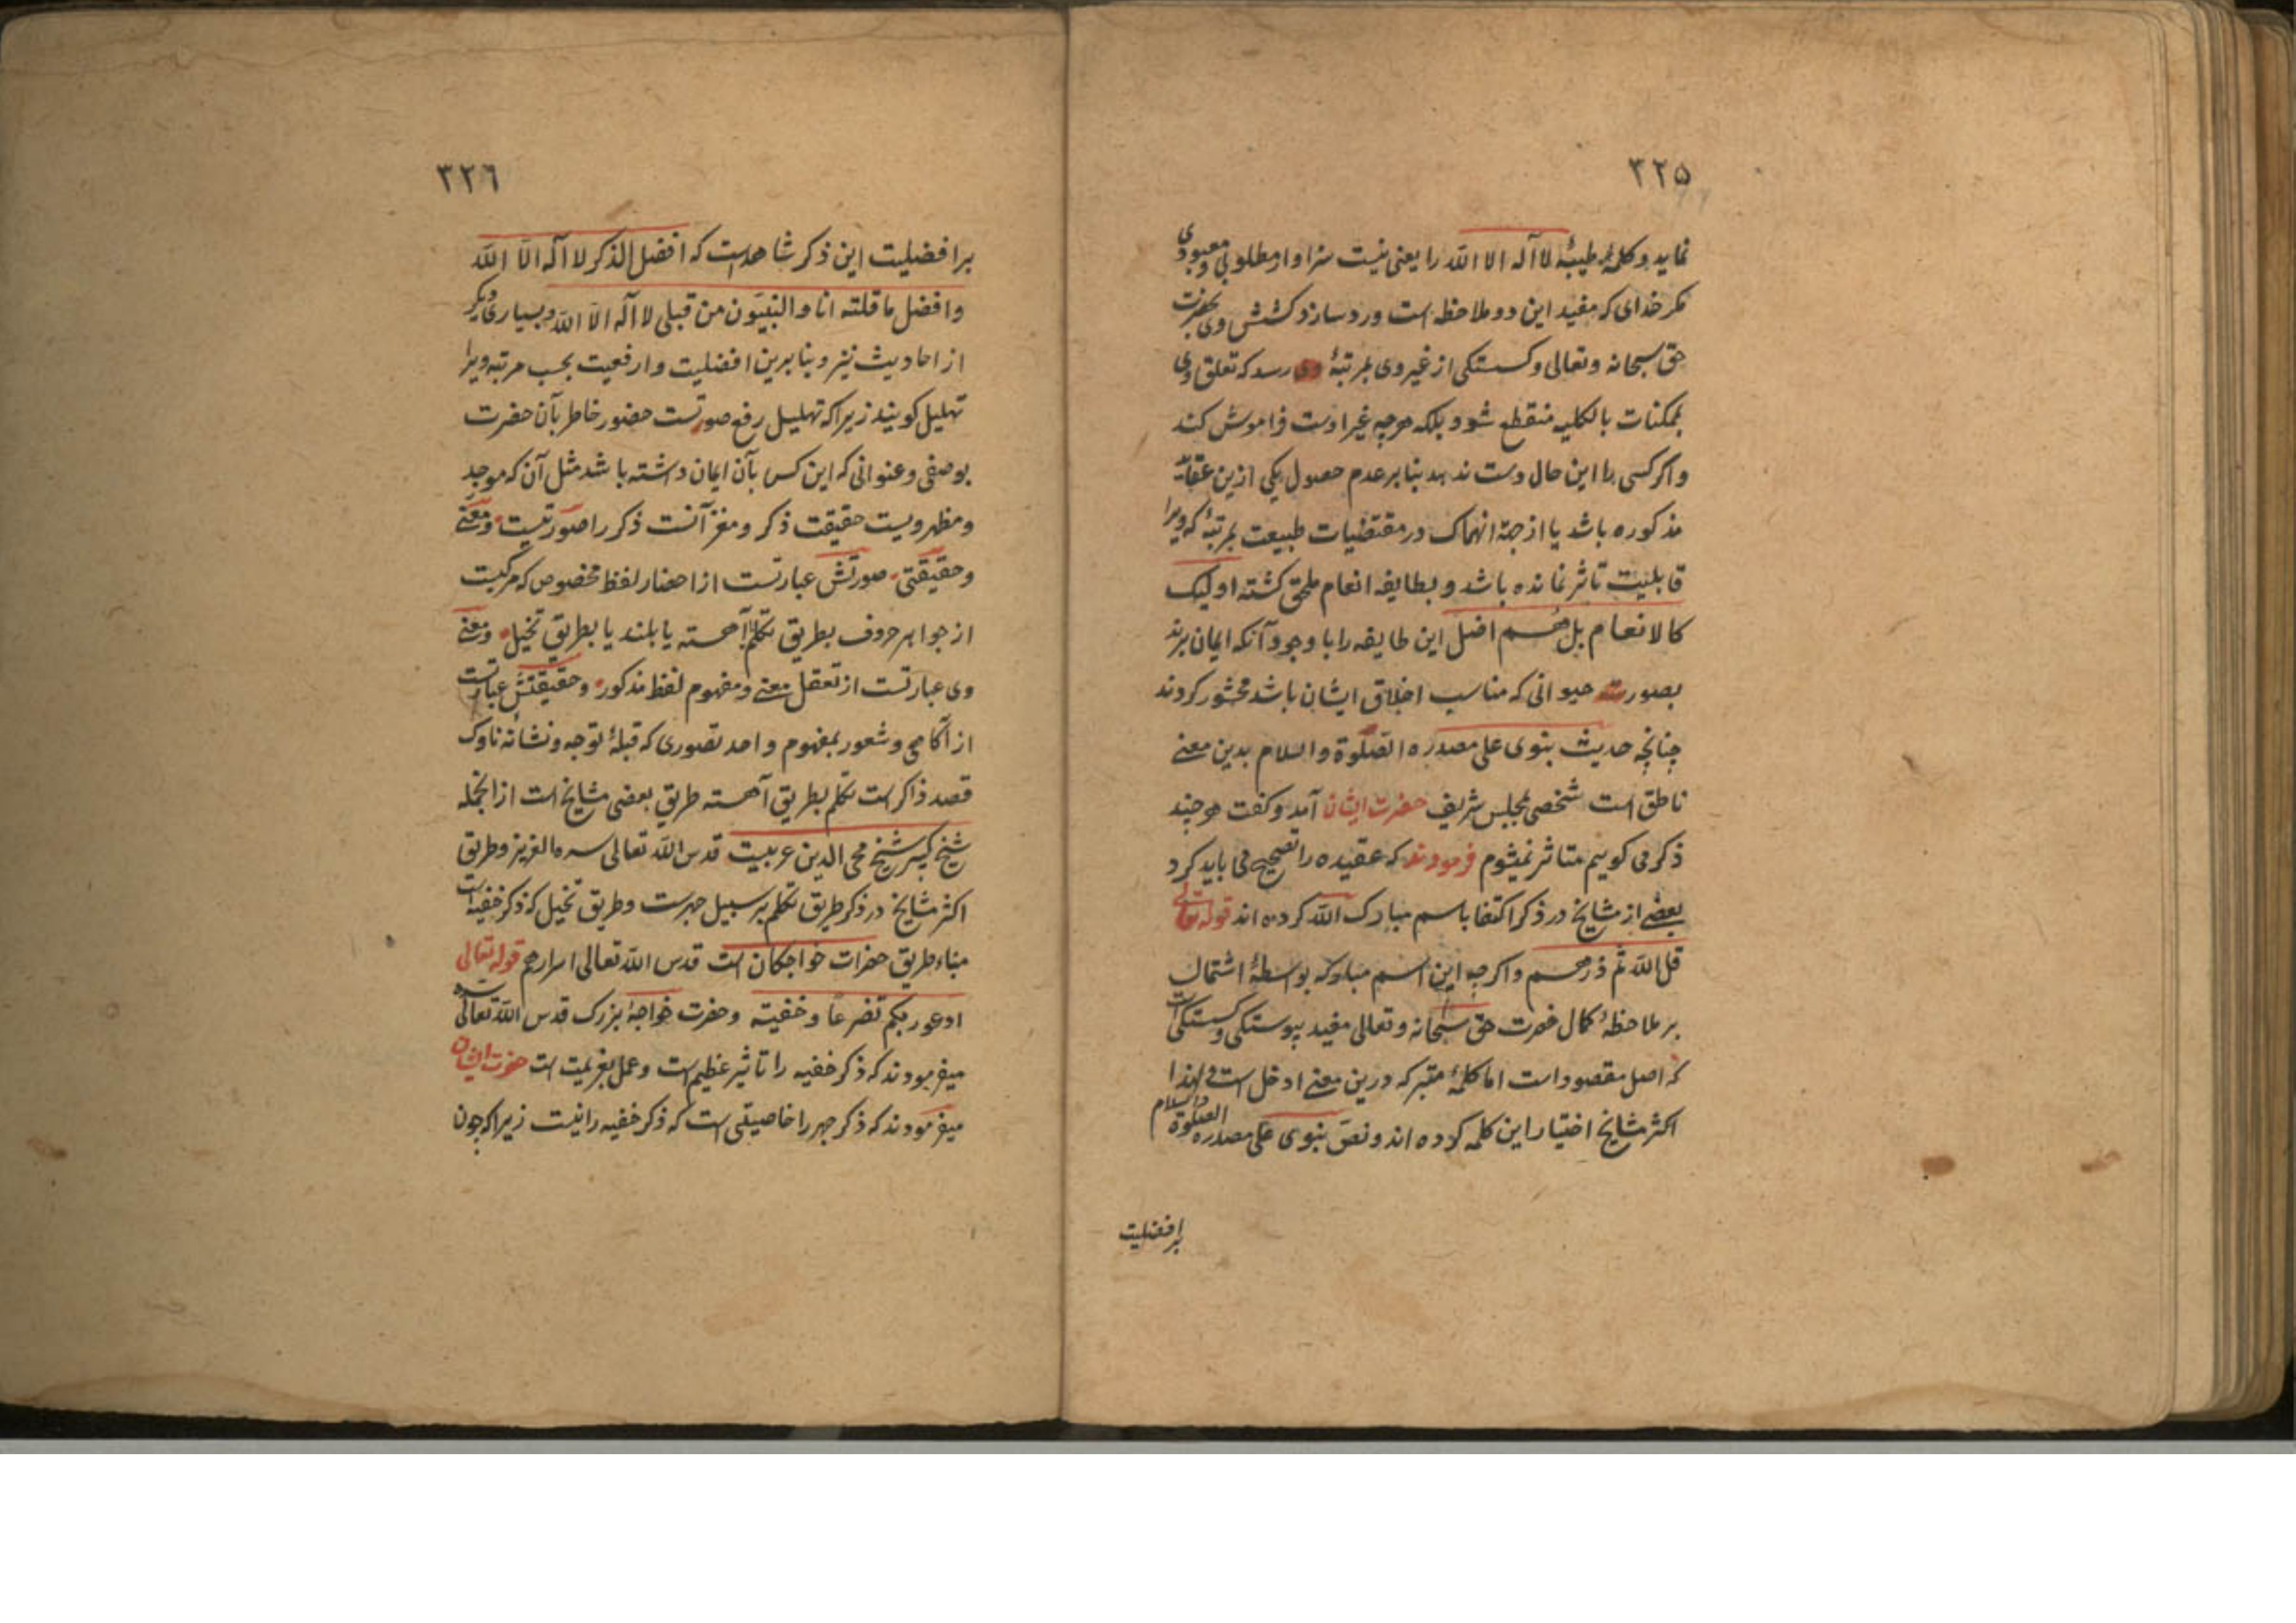 ۳۲۵
نماید و کلمهٔ طیبهٔ لا آله الا الله را یعنی نیست سزاوار مطلوبی و معبودی
مکر خدای که مفید این دو ملاحظه است ورد سازد کشش وی بحضرت
حق سبحانه وتعالی وکسستکی از غیر وی بمرتبهٔ رسد که تعلق وی
بممکنات بالکلیه منقطع شود و بلکه هرچه غیر اوست فراموش کند
واکر کسی را این حال دست ندهد بنابر عدم حصول یکی ازین عقاید
مذکوره باشد یا از جهة انهماک در مقتضیات طبیعت بمرتبهٔ که ویرا
قابلیت تاثر نمانده باشد و بطایفه انعام ملحق کشته اولیک
کالانعام بل هم اضل این طایفه را با وجود آنکه ایمان برند
بصورت حیوانی که مناسب اخلاق ایشان باشد محشور کردند
چنانچه حدیث نبوی علی مصدره الصلوة والسلام بدین معنے
ناطق است شخصی بمجلس شریف حضرت ایشان آمد وکفت هرچند
ذکر می کوییم متاثر نمیشوم فرمودند که عقیده را تصحیح می باید کرد
بعضے از مشایخ در ذکر اکتفا باسم مبارک الله کرده اند قوله تعالی
قل الله ثم ذرهم واکرچه این اسم مبارکه بواسطهٔ اشتمال
بر ملاحظهٔ کمال حضرت حق سبحانه وتعالی مفید پیوستکی وکسستکی است
که اصل مقصود است اما کلمهٔ متبرکه درین معنے ادخل است ولهذا
اکثر مشایخ اختیار این کلمه کرده اند ونص نبوی علی مصدره الصلوة والسلام
برافضلیت
۳۲۶
برافضلیت این ذکر شاهد است که افضل الذکر لا آله الا الله
وافضل ما قلته انا والنبیون من قبلی لا آله الا الله وبسیاری دیکر
از احادیث نیز وبنابرین افضلیت وارفعیت بحسب مرتبه ویرا
تهلیل کویند زیراکه تهلیل رفع صورتست حضور خاطر بآن حضرت
بوصفی وعنوانی که این کس بآن ایمان داشته باشد مثل آن که موجد
ومظهر ویست حقیقت ذکر ومغز آنست ذکر را صورتیست ومعنے
وحقیقتی صورتش عبارتست از احضار لفظ مخصوص که مرکبست
از جواهر حروف بطریق تکلم آهسته یا بلند یا بطریق تخیل ومعنے
وی عبارتست از تعقل معنے ومفهوم لفظ مذکور وحقیقتش عبارتست
از آکاهی وشعور بمفهوم واحد تصوری که قبلهٔ توجه ونشانه ناوک
قصد ذاکر است تکلم بطریق آهسته طریق بعضی مشایخ است از آنجمله
شیخ کبیر شیخ محی الدین عربیست قدس الله تعالی سره العزیز وطریق
اکثر مشایخ در ذکر طریق تکلم بر سبیل جهرست وطریق تخیل که ذکر خفیه است
مبناء طریق حضرات خواجکان است قدس الله تعالی اسرارهم قوله تعالی
ادعو ربکم تضرعا وخفیته وحضرت خواجهٔ بزرک قدس الله تعالی سره
میفرمودند که ذکر خفیه را تاثیر عظیم است وعمل بعزیمت است حضرت ایشان
میفرمودند که ذکر جهر را خاصیتی است که ذکر خفیه را نیست زیراکه چون